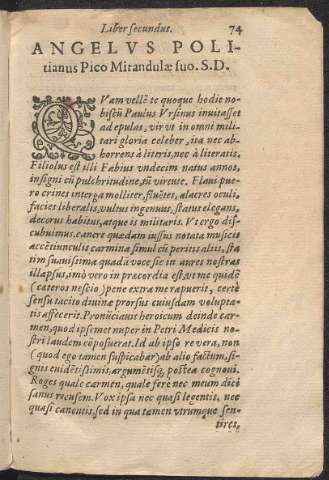 Liber secundus. 74
ANGELVS POLI-
tianus Pico Mirandulæ suo. S.D.
QVam vellē te quoque hodie no-
biscū Paulus Vrsinus inuitasset
ad epulas, vir vt in omni mili-
tari gloria celeber, ita nec ab-
horrens à literis, nec à literatis.
Filiolus est illi Fabius vndecim natus annos,
insigni cū pulchritudine, tū virtute. Flaui pue-
ro crines interga molliter, fluētes, alacres oculi,
facies liberalis, vultus ingenuus, status elegans,
decorus habitus, atque is militaris. Vt ergo dis-
cubuimus, canere quædam iussus notata musicis
accētiunculis carmina simul cū peritis aliis, sta
tim suauissima quadā voce sic in aures nostras
illapsus, imò vero in præcordia est, vt me quidē
(cateros nescio) pene extra me rapuerit, certè
sensu tacito diuinæ prorsus cuiusdam volupta-
tis affecerit. Pronūciauit heroicum deinde car-
men, quod ipsemet nuper in Petri Medicis no-
stri laudem cōposuerat. Id ab ipso re vera, non
(quod ego tamen suspicabar) ab alio factum, si-
gnis euidētissimis, argumētisq, postea cognoui.
Roges quale carmen, quale fere nec meum dici
sanus recusem. Vox ipsa nec quasi legentis, nec
quasi canentis, sed in qua tamen vtrumque sen-
tires,